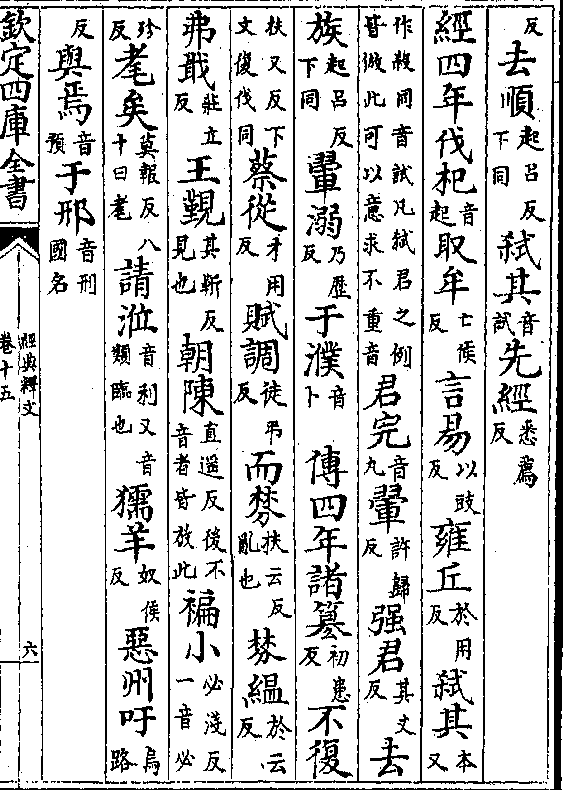 反去順起呂反下同弑其音試先經悉薦反
經四年伐杞音起取牟亡侯反言易以豉反雍丘於用反弑其本又
作殺同音試凡弑君之例皆倣此可以意求不重音君完音丸翬許歸反强君其丈反去
族起呂反下同翬溺乃歷反于濮音卜傳四年諸簒初患反不復
扶又反下文復伐同蔡從才用反賦調徒弔反而棼扶云反亂也棼緼於云反
弗戢莊立反王覲其靳反見也朝陳直遥反後不音者皆放此褊小必淺反一音必
珍反耄矣莫報反八十曰耄請涖音利又音類臨也獳羊奴侯反惡州吁烏路
反與焉音預于邢音刑國名
欽定四庫全書
經典釋文
卷十五
六